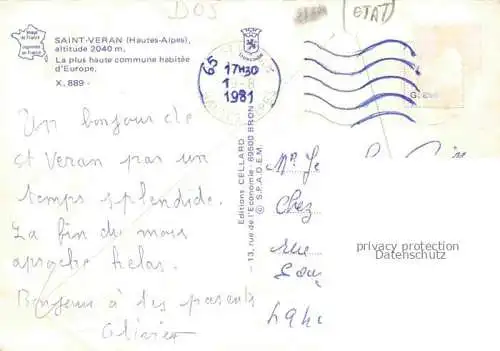 DOS
(ETAT)
Image de France
SAINT-VERAN (Hautes-Alpes),
altitude 2040 m.
La plus haute commune habitée
d'Europe.
X. 889 -
17H30
1981
Un bonjour de
St Veran par un
temps splendide.
La fin du mois
aproche helas.
Bonjour à tes parents
Olivier
Editions CELLARD
- 13, rue de l'Economie 69500 BRON
© S.P.A.D.E.M.
Chez
rue
privacy protection
Oldthing.com